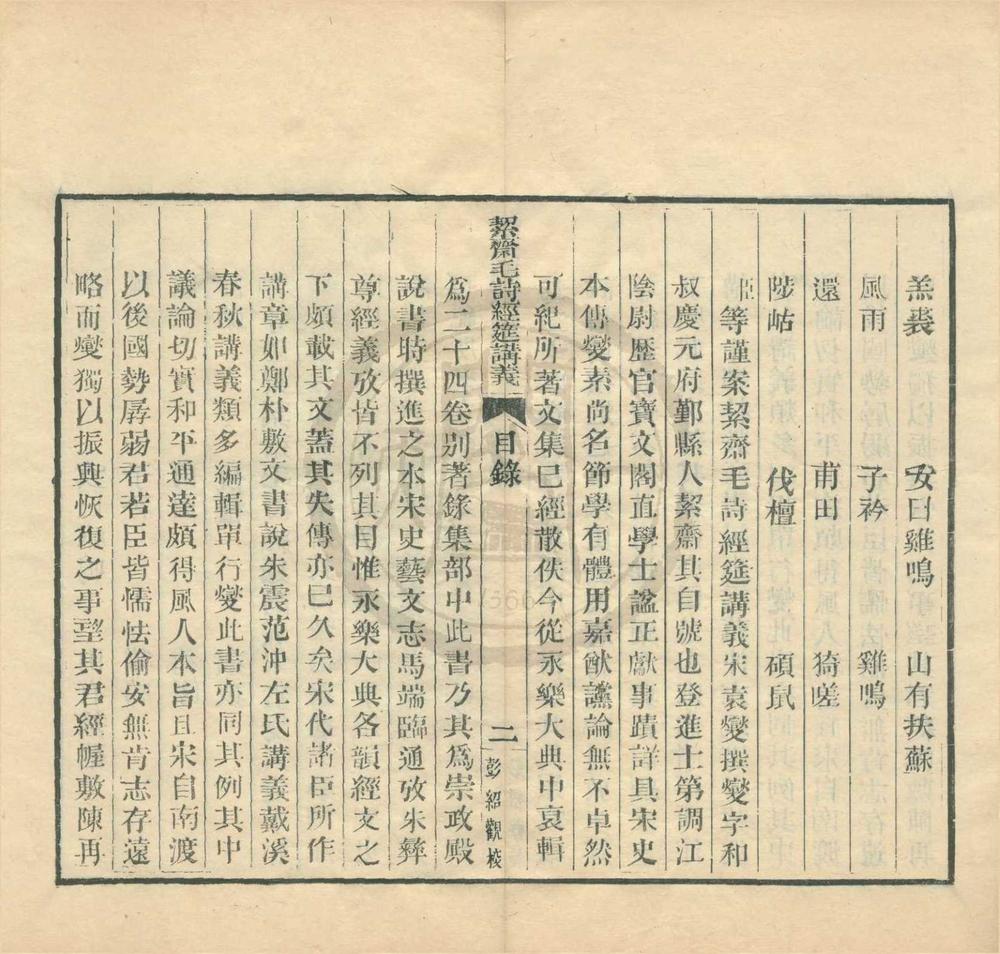 羔裘　女曰雞鳴　山有扶蘇
風雨　子衿　雞鳴
還　甫田　猗嗟
陟岵　伐檀　碩鼠
等謹案絜齋毛詩經筵講義宋袁燮撰燮字和
叔慶元府鄞縣人絜齋其自號也登進士第調江
陰尉歷官寶文閣直學士諡正獻事蹟詳具宋史
本傳燮素尚名節學有體用嘉猷讜論無不卓然
可紀所著文集已經散佚今從永樂大典中裒輯
絜齋毛詩經筵講義　目錄　二　彭紹觀校
爲二十四卷别著錄集部中此書乃其爲崇政殿
說書時撰進之本宋史藝文志馬端臨通攷朱彝
尊經義攷皆不列其目惟永樂大典各韻經文之
下頗載其文蓋其失傳亦已久矣宋代諸臣所作
講章如鄭朴敷文書說朱震范沖左氏講義戴溪
春秋講義類多編輯單行燮此書亦同其例其中
議論切實和平通達頗得風人本旨且宋自南渡
以後國勢孱弱君若臣皆懦怯偷安無肯志存遠
略而燮獨以振興恢復之事望其君經幄敷陳再